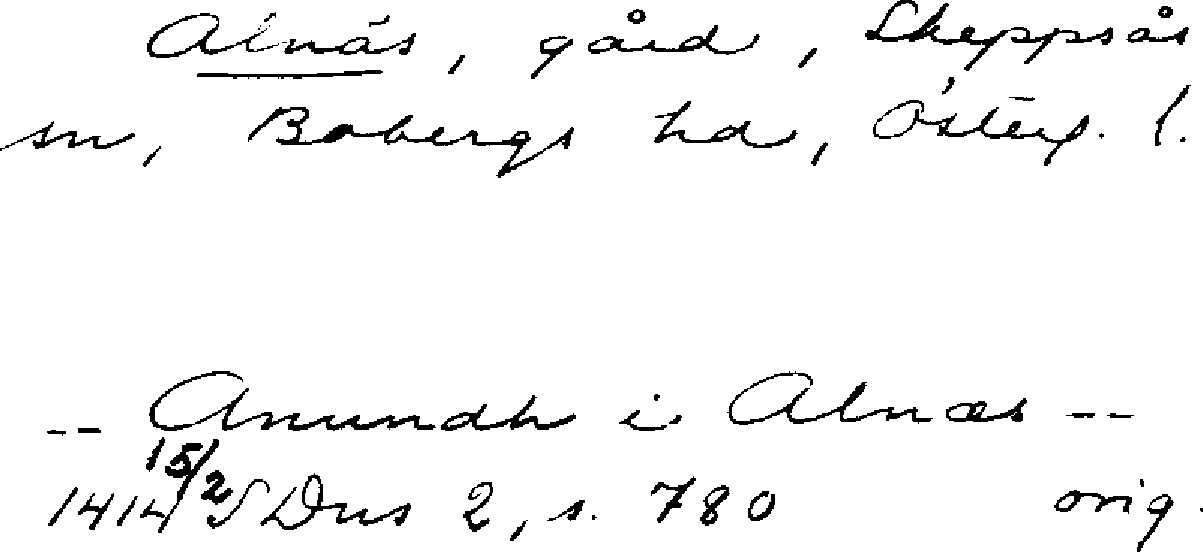 Alnäs, gård, Skeppsås
sn, Bobergs hd, Österg. l.
-- Anundh i Alnæs --
1414 15/2 SDns 2, s. 780 orig.